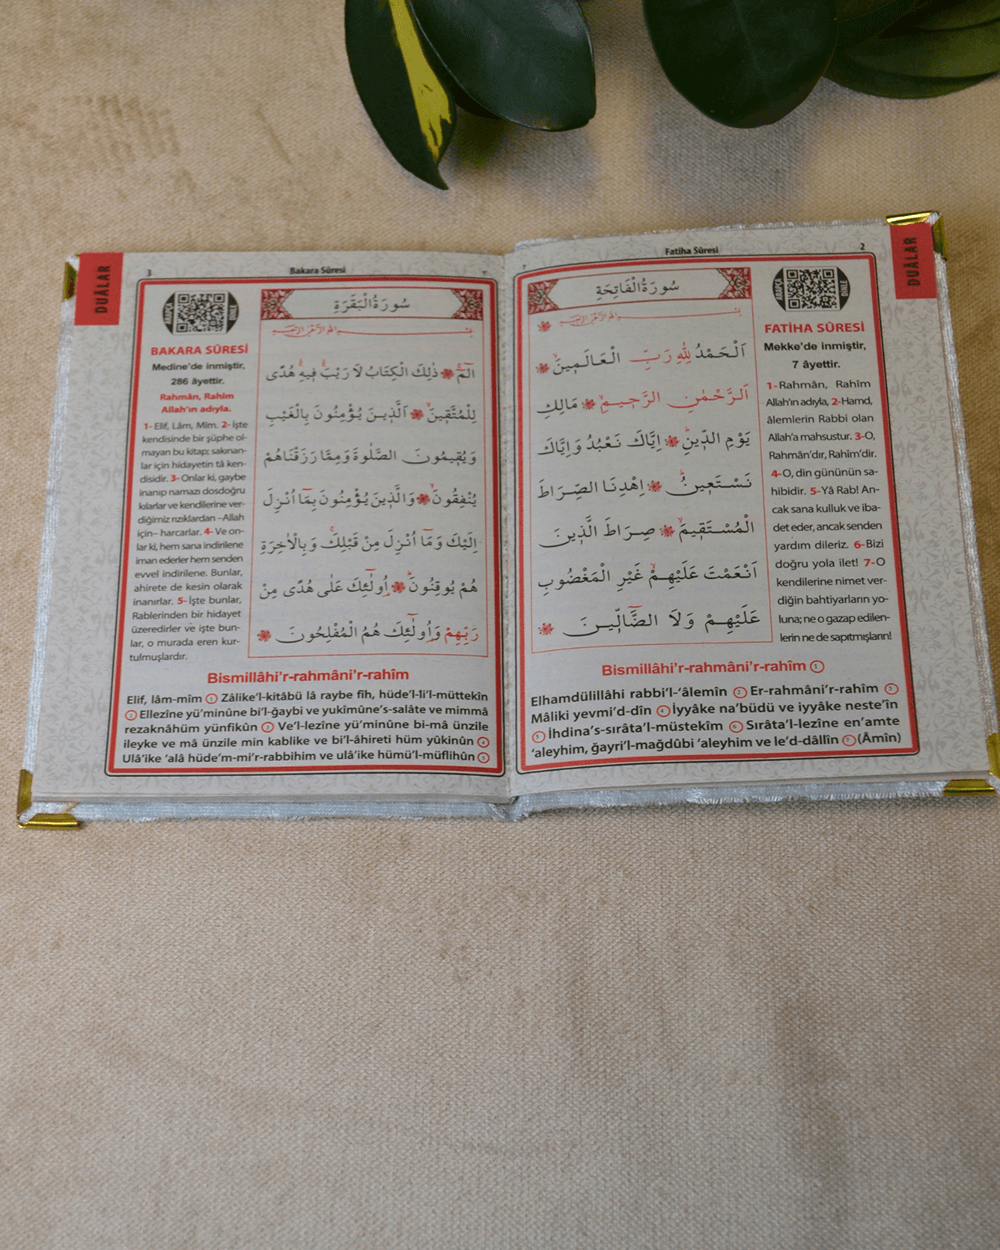 DUÂLAR
2
Fatiha Sûresi
سُورَةُ الْفَاتِحَةِ
اَلْحَمْدُ لِلّٰهِ رَبِّ الْعَالَمِينَ
اَلرَّحْمٰنِ الرَّحِيمِ مَالِكِ
يَوْمِ الدِّينِ اِيَّاكَ نَعْبُدُ وَاِيَّاكَ
نَسْتَعِينُ اِهْدِنَا الصِّرَاطَ
الْمُسْتَقِيمَ صِرَاطَ الَّذِينَ
اَنْعَمْتَ عَلَيْهِمْ غَيْرِ الْمَغْضُوبِ
عَلَيْهِمْ وَلَا الضَّالِّينَ
FATİHA SÛRESİ
Mekke'de inmiştir,
7 âyettir.
1- Rahmân, Rahîm
Allah'ın adıyla, 2- Hamd,
âlemlerin Rabbi olan
Allah'a mahsustur. 3- O,
Rahmân'dır, Rahîm'dir.
4- O, din gününün sa-
hibidir. 5- Yâ Rab! An-
cak sana kulluk ve iba-
det eder, ancak senden
yardım dileriz. 6- Bizi
doğru yola ilet! 7- O
kendilerine nimet ver-
diğin bahtiyarların yo-
luna; ne o gazap edilen-
lerin ne de sapıtmışların!
Bismillâhi'r-rahmâni'r-rahîm 1
Elhamdülillâhi rabbi'l-'âlemîn 2 Er-rahmâni'r-rahîm 3
Mâliki yevmi'd-dîn 4 İyyâke na'büdü ve iyyâke neste'în
5 İhdina's-sırâta'l-müstekîm 6 Sırâta'l-lezîne en'amte
'aleyhim, ğayri'l-mağdûbi 'aleyhim ve le'd-dâllîn 7 (Âmîn)
DUÂLAR
3
Bakara Sûresi
سُورَةُ الْبَقَرَةِ
الٓمٓ ذٰلِكَ الْكِتَابُ لَا رَيْبَ فِيهِ هُدًى
لِلْمُتَّقِينَ اَلَّذِينَ يُؤْمِنُونَ بِالْغَيْبِ
وَيُقِيمُونَ الصَّلٰوةَ وَمِمَّا رَزَقْنَاهُمْ
يُنْفِقُونَ وَالَّذِينَ يُؤْمِنُونَ بِمَٓا اُنْزِلَ
اِلَيْكَ وَمَٓا اُنْزِلَ مِنْ قَبْلِكَ وَبِالْاٰخِرَةِ
هُمْ يُوقِنُونَ اُو۬لٰٓئِكَ عَلٰى هُدًى مِنْ
رَبِّهِمْ وَاُو۬لٰٓئِكَ هُمُ الْمُفْلِحُونَ
BAKARA SÛRESİ
Medine'de inmiştir,
286 âyettir.
Rahmân, Rahîm
Allah'ın adıyla.
1- Elif, Lâm, Mîm. 2- İşte
kendisinde bir şüphe ol-
mayan bu kitap; sakınan-
lar için hidayetin tâ ken-
disidir. 3- Onlar ki, gaybe
inanıp namazı dosdoğru
kılarlar ve kendilerine ver-
diğimiz rızıklardan –Allah
için– harcarlar. 4- Ve on-
lar ki, hem sana indirilene
iman ederler hem senden
evvel indirilene. Bunlar,
ahirete de kesin olarak
inanırlar. 5- İşte bunlar,
Rablerinden bir hidayet
üzeredirler ve işte bun-
lar, o murada eren kur-
tulmuşlardır.
Bismillâhi'r-rahmâni'r-rahîm
Elif, lâm-mîm 1 Zâlike'l-kitâbü lâ raybe fîh, hüde'l-li'l-müttekîn
2 Ellezîne yü'minûne bi'l-ğaybi ve yukîmûne's-salâte ve mimmâ
rezaknâhüm yünfikûn 3 Ve'l-lezîne yü'minûne bi-mâ ünzile
ileyke ve mâ ünzile min kablike ve bi'l-âhireti hüm yûkinûn 4
Ulâ'ike 'alâ hüde'm-mi'r-rabbihim ve ulâ'ike hümü'l-müflihûn 5